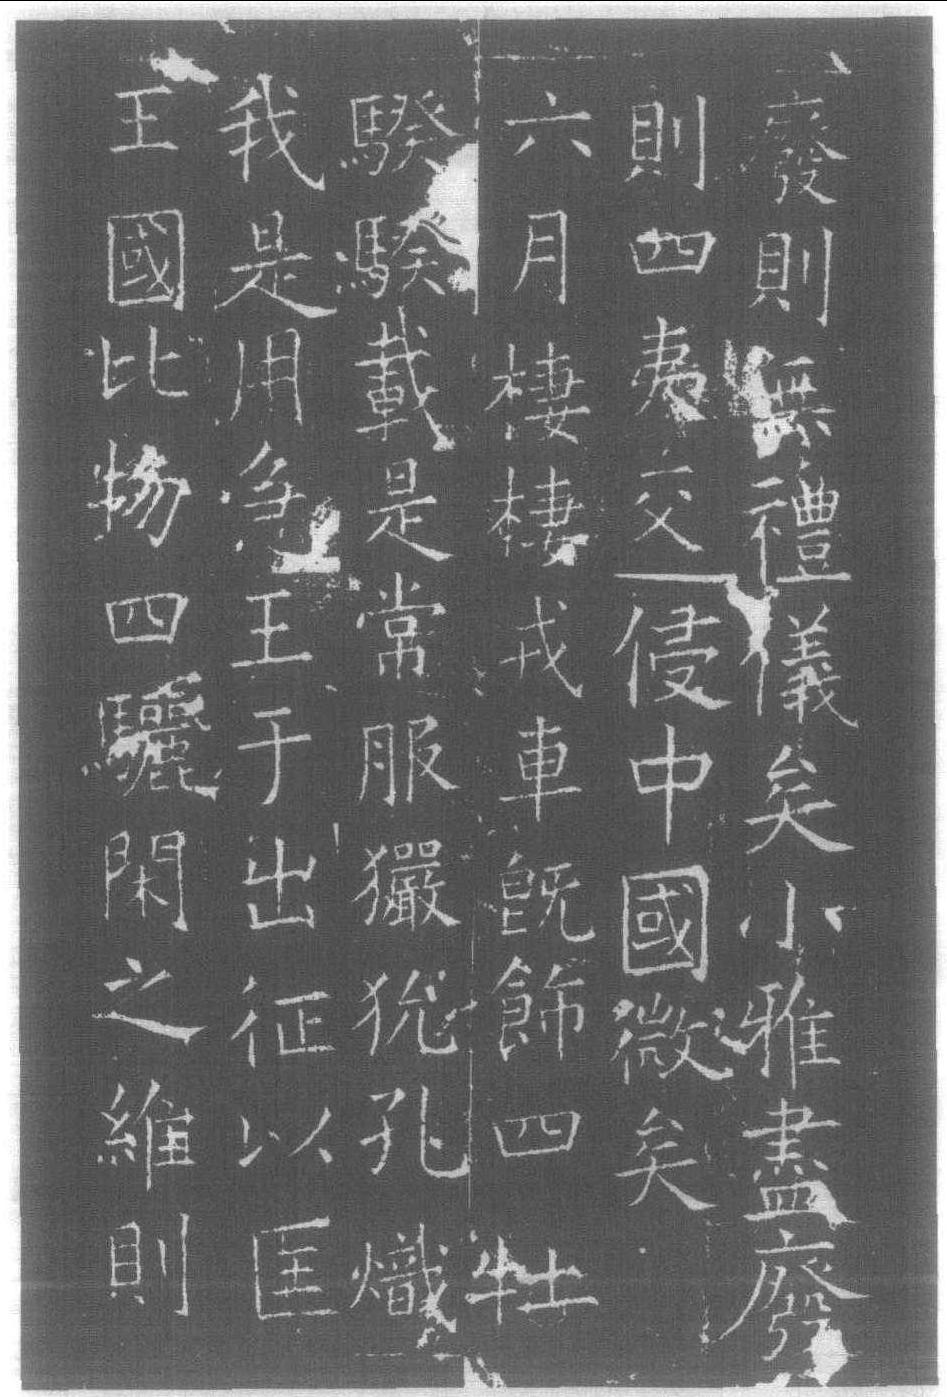 廢則無禮儀矣小雅盡廢
則四夷交侵中國微矣
六月棲棲戎車既飾四牡
騤騤載是常服玁狁孔熾
我是用急王于出征以匡
王國比物四驪閑之維則